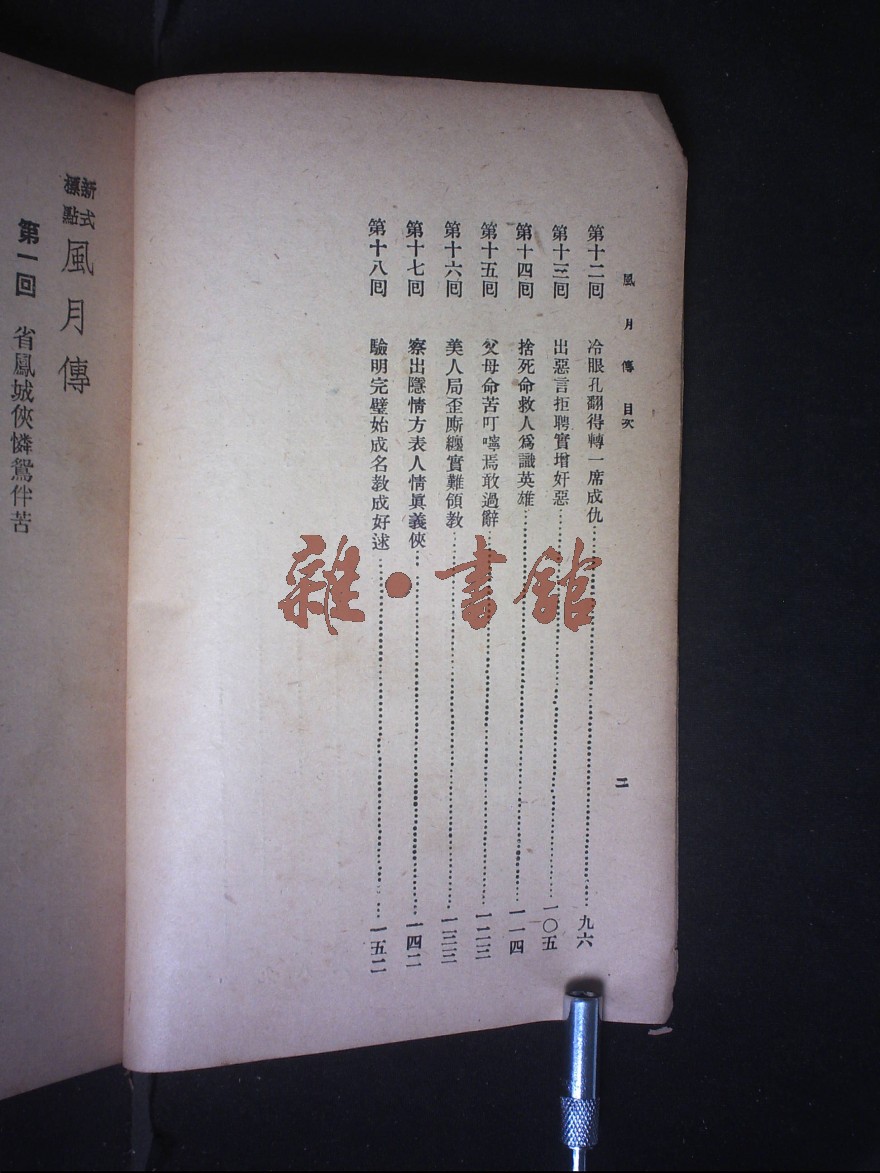 風月傳 目次 二
第十二回 冷眼孔翻得轉一席成仇 九六
第十三回 出惡言拒聘實增奸惡 一〇五
第十四回 捨死命救人為識英雄 一一四
第十五回 父母命苦叮嚀焉敢過辭 一二三
第十六回 美人局歪廝纏實難領教 一三三
第十七回 察出隱情方表人情眞義俠 一四二
第十八回 驗明完璧始成名教成好逑 一五二
新式標點 風月傳
第一回 省鳳城俠憐鴛伴苦
雜·書館